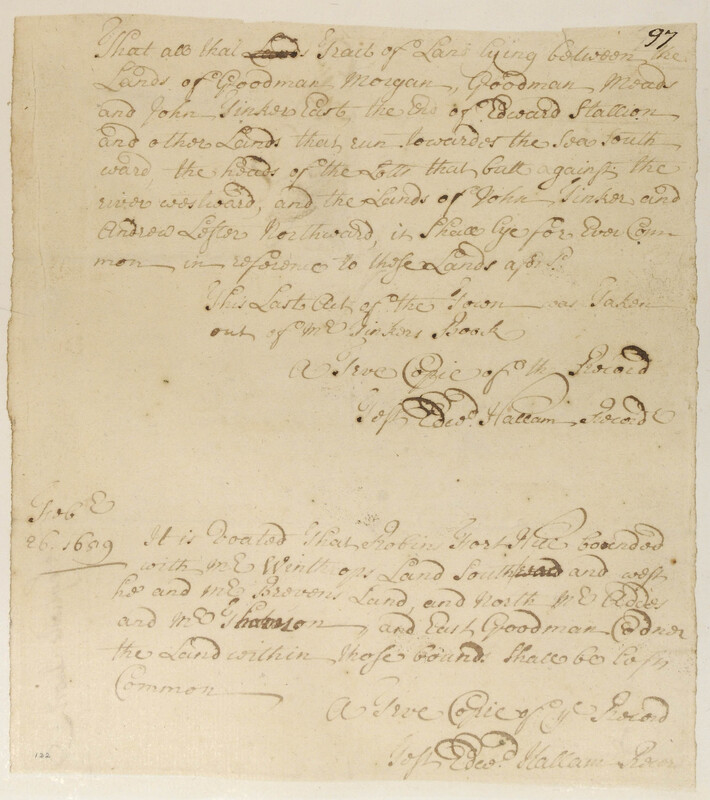 97
That all that Trait of Land lying between the
Lands of Goodman Morgan, Goodman Meads
and John Tinker East, the End of Edward Stallion
and other Lands that run towardes the Sea South
ward, the heads of the Lotts that butt against the
river westward, and the Lands of John Tinker and
Andrew Lester Northward, it Shall lye for Ever Com
mon in reference to those Lands afors.d
This Last Act of the Town was Taken
out of Mr Tinkers Book
A Trve Copie of th Record
Test Edwd. Hallam Record
Feb.
26. 1659
It is Voated That Robins Fort Hill bounded
with Mr Winthrops Land South and west
he and Mr Brevens Land, and North Mr Addes
and Mr and East Goodman Codner
the Land within those bounds Shall be
Common
A Trve Copie of ye Record
Test Edwd. Hallam Recor
122